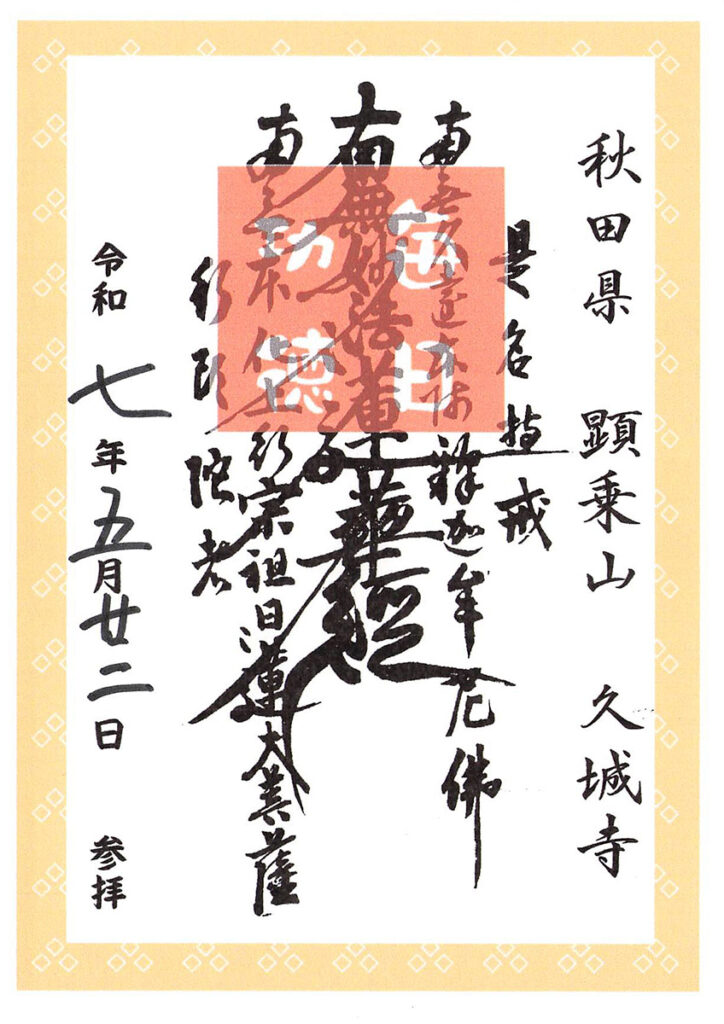 秋田県 顕乗山 久城寺
是名持戒
南無久遠実成釋迦牟尼佛
南無妙法蓮華經
南無本化上行宗祖日蓮大菩薩
行頭陀者
令和七年五月廿二日 参拝
功徳